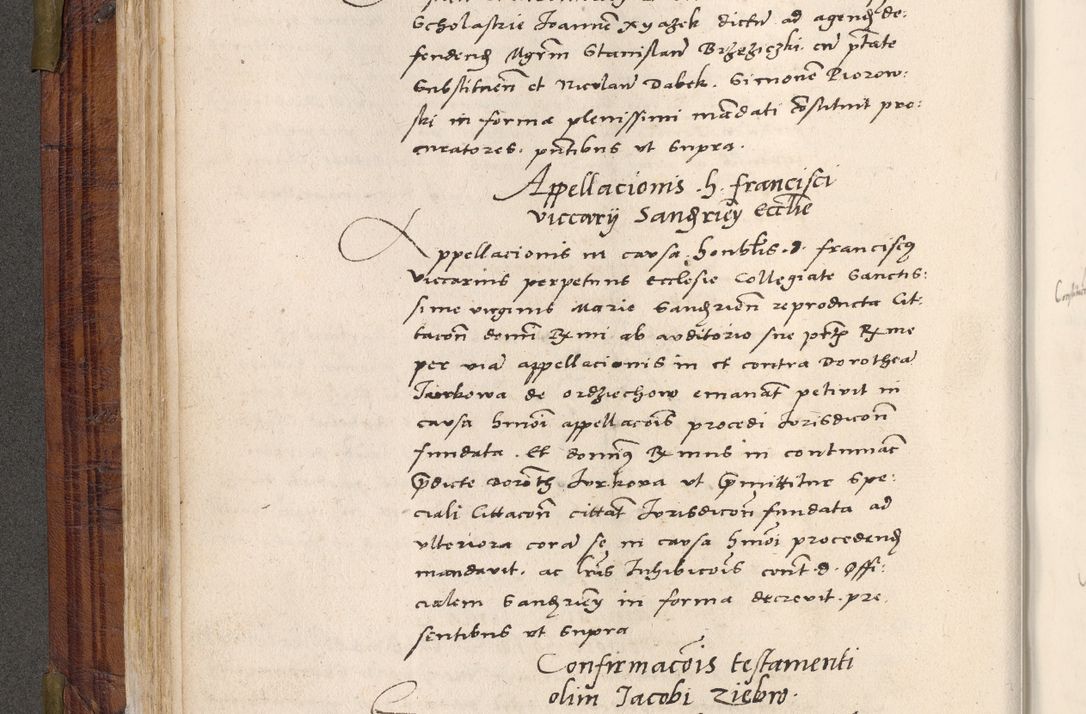 Scholastrie Joannem Xyazek dictu ad agend de:
fendend Mgrm Stanislau Brzeziczki cu ptate
Substituen et Nicolau Dabek. Simonem Piorow:
ski in forma plenissimi madati constituit pro:
curatores. pntibus ut supra.
Appellacionis .h. francisci
viccarij Sandzrien Ecclie
Appellacionis in causa honblis d. franciscus
viccarius perpetuus ecclesie Collegiate Sanctis:
sime virginis Marie Sandzrien reproducta Cit:
tacon domi Rmi ab auditorio sue pt Rme
per via appellacionis in et contra Dorothea
Jurkowa de ordziechow emanat petivit in
causa hmoi appellacois procedi Jurisdicon
fundata. Et dominus Rmus in contumac
pdicte Doroth Jurkowa ut pmittitur spe:
ciali Cittacon cittat Jurisdicon fundata ad
ulteriora cora se in causa hmoi procedend
mandavit. ac lris Inhibicois cont. d. Offi:
cialem Sandzrien in forma decrevit pre
sentibus ut supra
Confirmacois testamenti
olim Jacobi Ziebro.